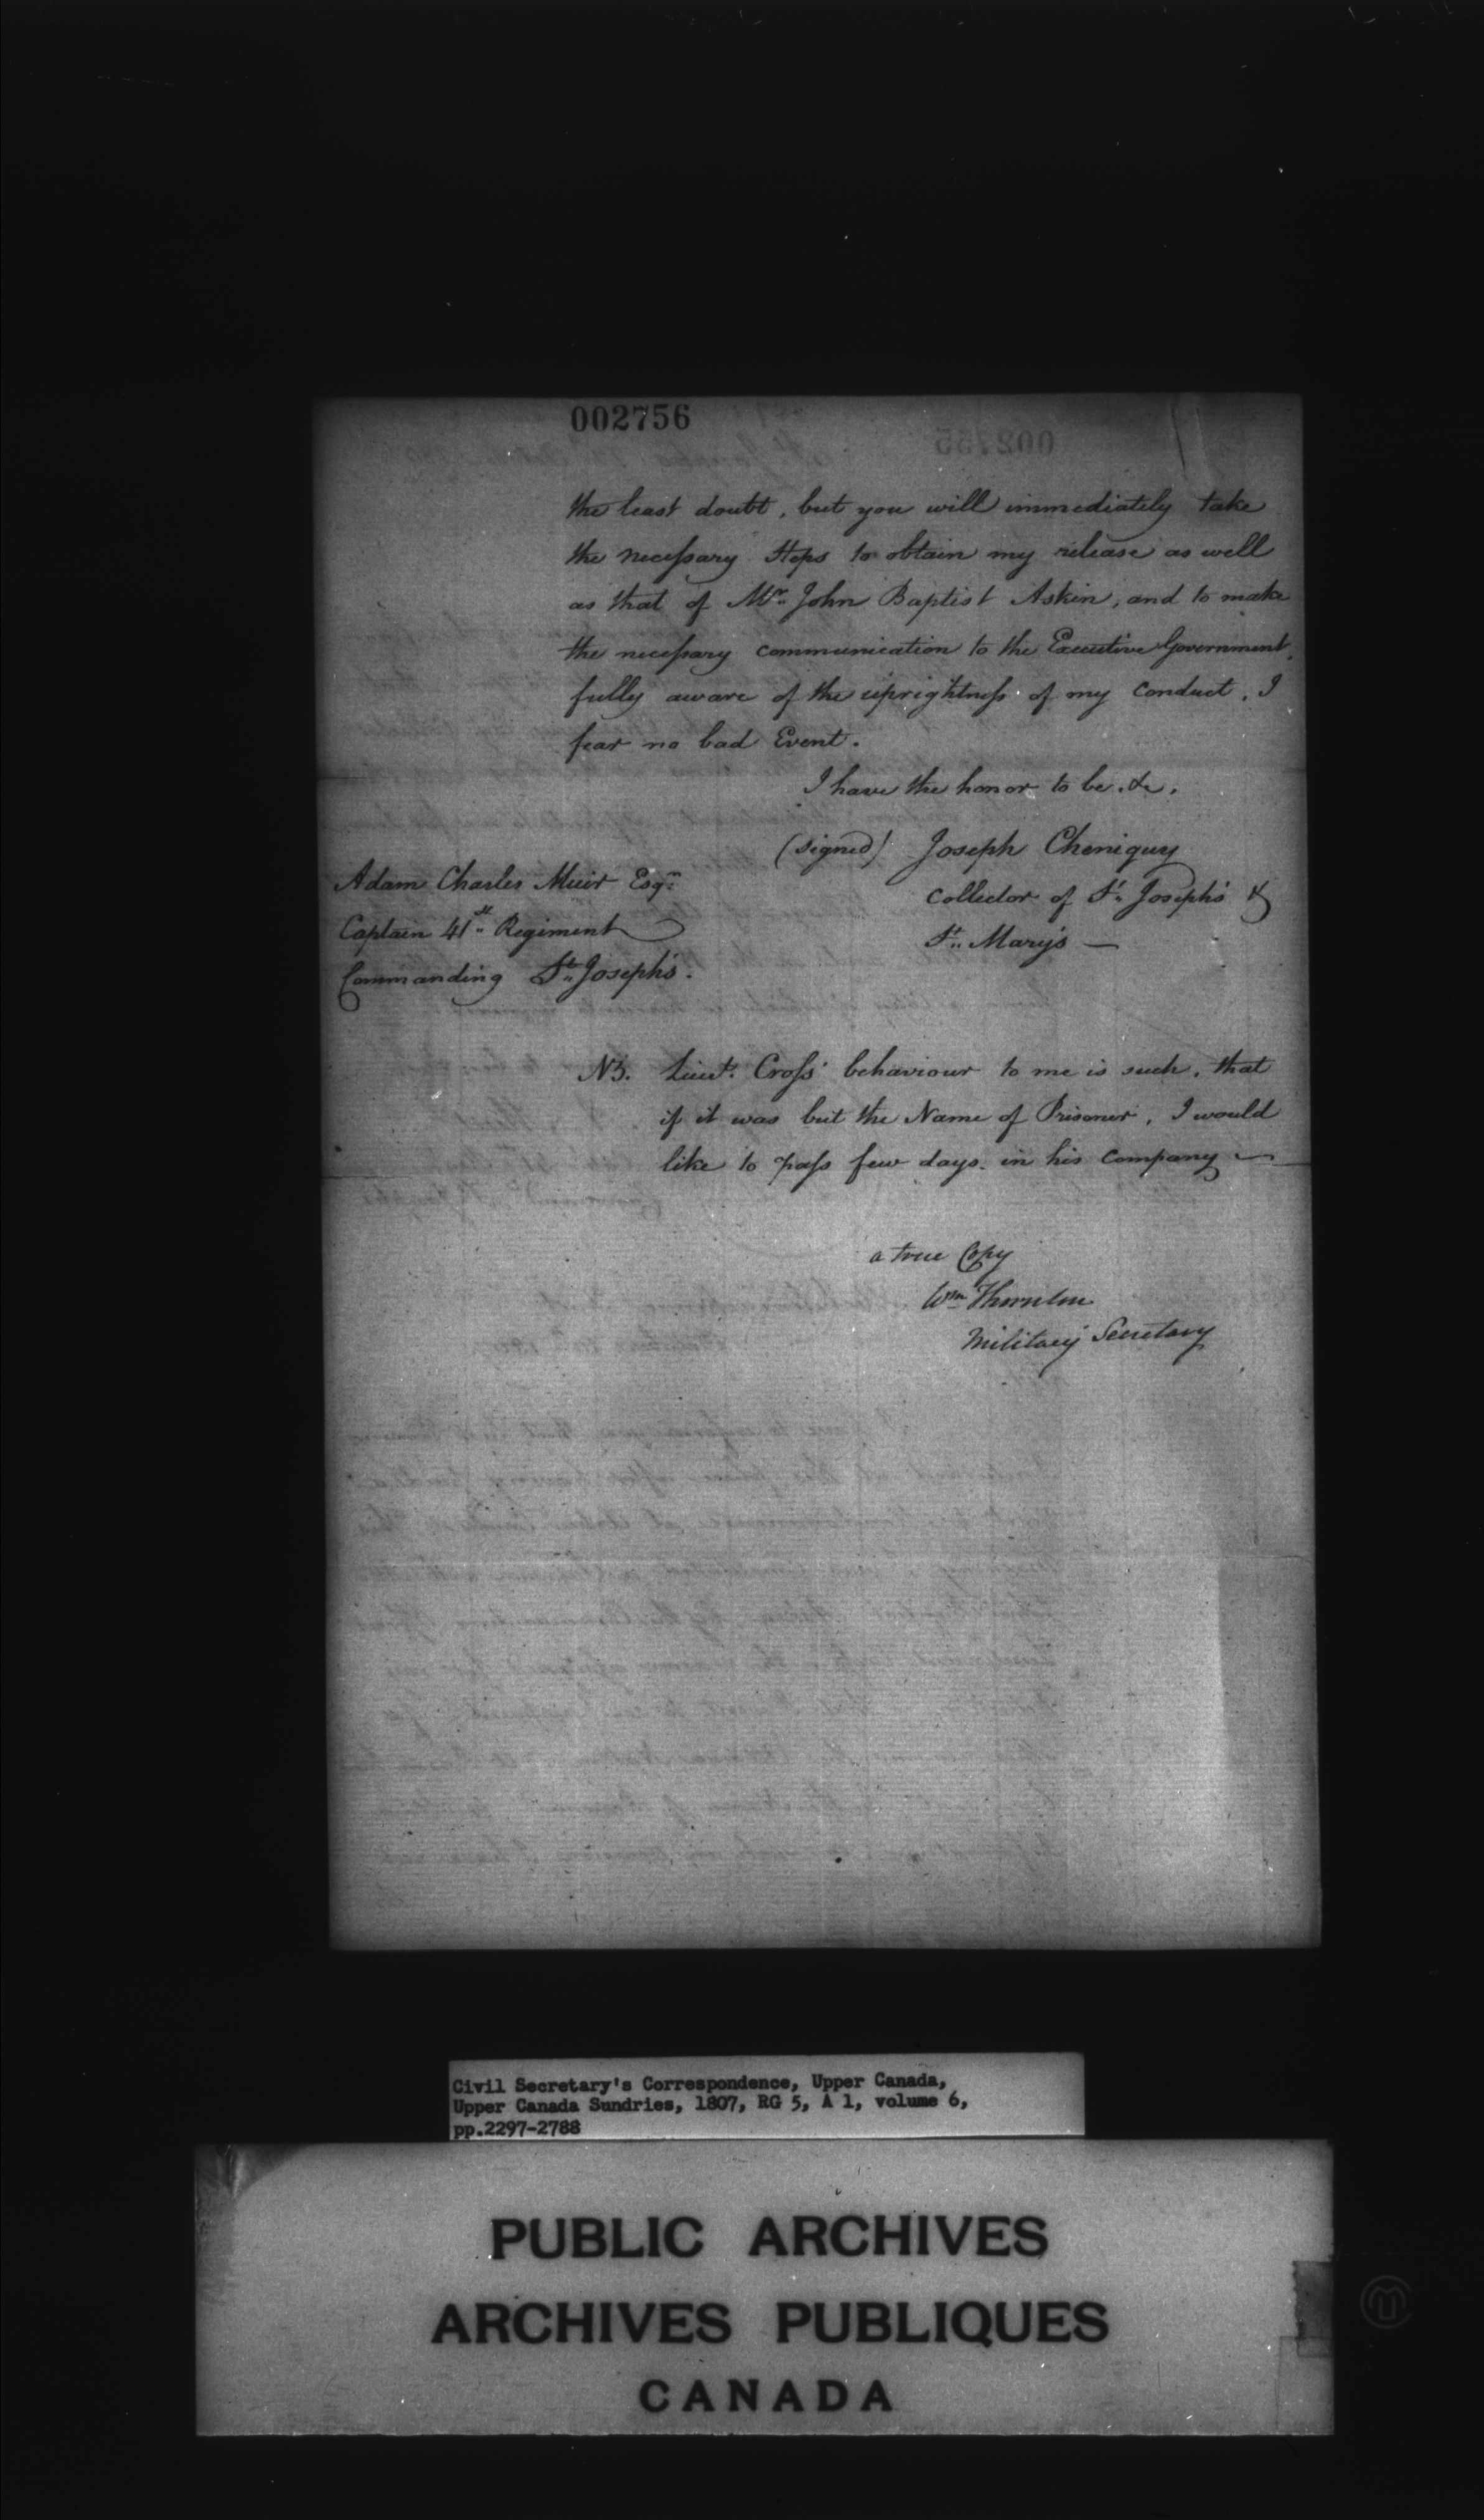 002756
the least doubt, but you will immediately take
the necessary Steps to obtain my release as well
as that of Mr. John Baptist Askin, and to make
the necessary communication to the Executive Government,
fully aware of the uprightness of my Conduct, I
fear no bad Event.
I have the honor to be. &c.
(signed) Joseph Cheniquy
Collector of St. Joseph's &
St. Mary's —
Adam Charles Muir Esqr.
Captain 41st Regiment
Commanding St. Joseph's.
NB. Lieut. Cross' behaviour to me is such, that
if it was but the Name of Prisoner, I would
like to pass few days in his Company —
a true Copy
Wm Thornton
Military Secretary
Civil Secretary's Correspondence, Upper Canada,
Upper Canada Sundries, 1807, RG 5, A 1, volume 6,
pp.2297-2788
PUBLIC ARCHIVES
ARCHIVES PUBLIQUES
CANADA